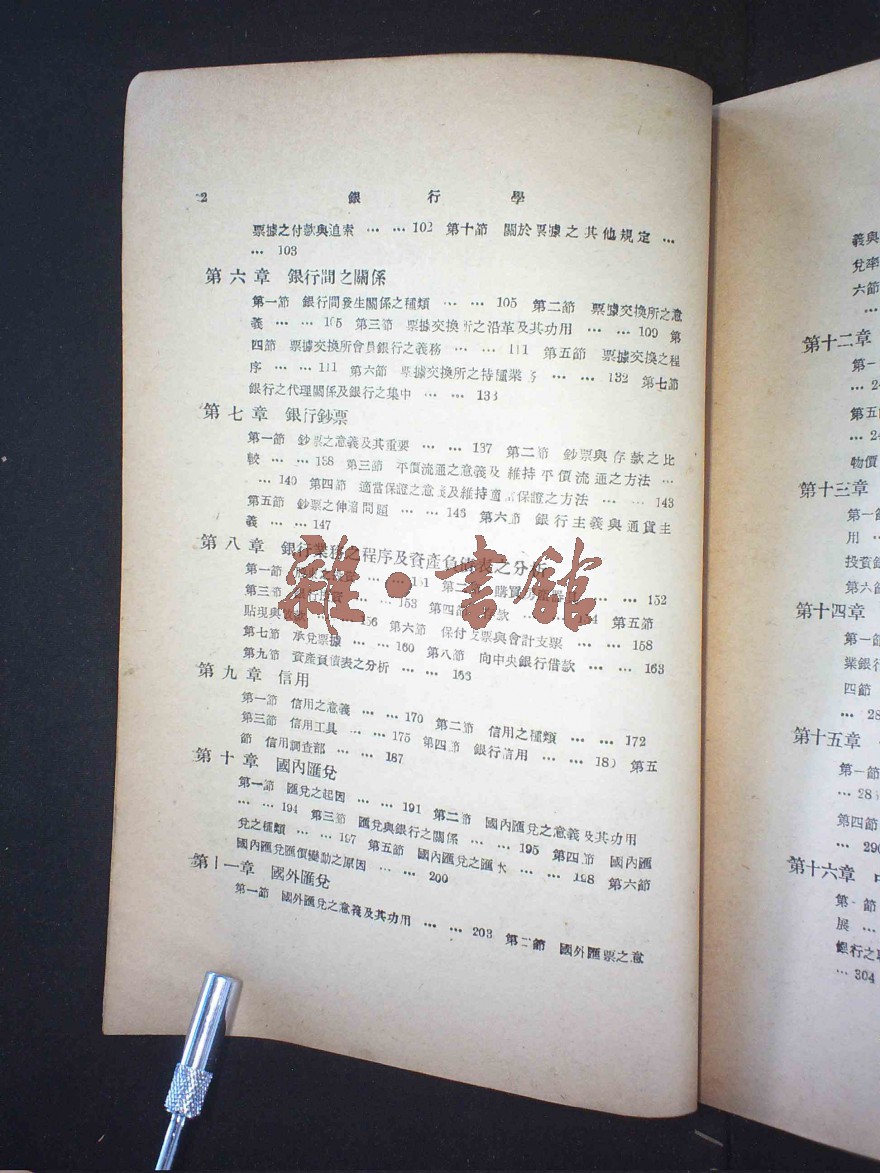 2 銀行學
票據之付款與追索 … … 102 第十節 關於票據之其他規定 …
… 103
第六章 銀行間之關係
第一節 銀行間發生關係之種類 … … 105 第二節 票據交換所之意
義 … … 105 第三節 票據交換所之沿革及其功用 … … 109 第
四節 票據交換所會員銀行之義務 … … 111 第五節 票據交換之程
序 … … 111 第六節 票據交換所之特種業務 … … 132 第七節
銀行之代理關係及銀行之集中 … … 133
第七章 銀行鈔票
第一節 鈔票之意義及其重要 … … 137 第二節 鈔票與存款之比
較 … … 138 第三節 平價流通之意義及維持平價流通之方法 …
… 140 第四節 適當保證之意義及維持適當保證之方法 … … 143
第五節 鈔票之伸縮問題 … … 146 第六節 銀行主義與通貨主
義 … … 147
第八章 銀行業務之程序及資產負債表之分析
第一節 … … 第二節 購買 … … 152
第三節 銀行 … 153 第四節 款 … 第五節
貼現與 … 156 第六節 保付支票與會計支票 … … 158
第七節 承兌票據 … … 160 第八節 向中央銀行借款 … … 163
第九節 資產負債表之分析 … … 163
第九章 信用
第一節 信用之意義 … … 170 第二節 信用之種類 … … 172
第三節 信用工具 … … 175 第四節 銀行信用 … … 第五
節 信用調查部 … … 187
第十章 國內匯兌
第一節 匯兌之起因 … … 191 第二節 國內匯兌之意義及其功用
… … 194 第三節 匯兌與銀行之關係 … … 195 第四節 國內匯
兌之種類 … … 197 第五節 國內匯兌之匯水 … … 198 第六節
國內匯兌匯價變動之原因 … … 200
第十一章 國外匯兌
第一節 國外匯兌之意義及其功用 … … 203 第二節 國外匯票之意
雜·書館
義與
兌率
六節
…
第十二章
第一
… 2
第五
… 2
物價
第十三章
第一節
用 …
投資
第六
第十四章
第一節
業銀行
四節
… 28
第十五章
第一節
… 28
第四節
… 290
第十六章
第一節
展 …
銀行之
… 304